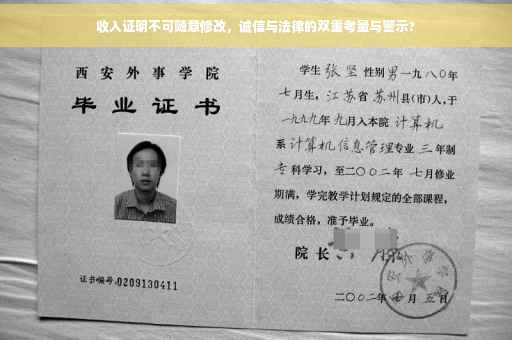 收入证明不可随意修改，诚信与法律的双重考量与警示？
西安外事学院
毕业证书
证书编号:0209130411
学生 张坚 性别 男 一九八〇年
七月生，江苏省苏州县(市)人,于
一九九九年九月入本院 计算机
系 计算机信息管理专业 三年制
专科学习，至二〇〇二年 七月修业
期满，学完教学计划规定的全部课程，
成绩合格，准予毕业。
院长
二〇〇二年 月 五日